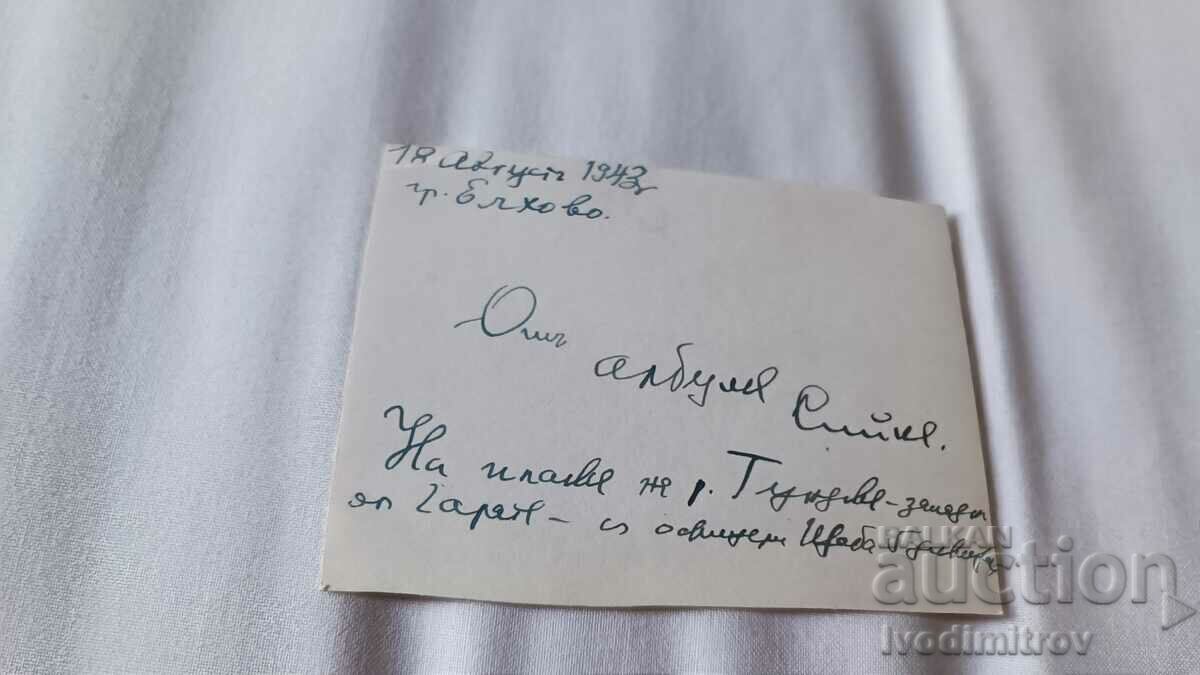 18 Август 1943г
гр. Елхово.
От албума Сийка.
На плажа на р. Тунджа – запад
от Гарата – с офицери Щаба
BALKAN
auction
Ivodimitrov